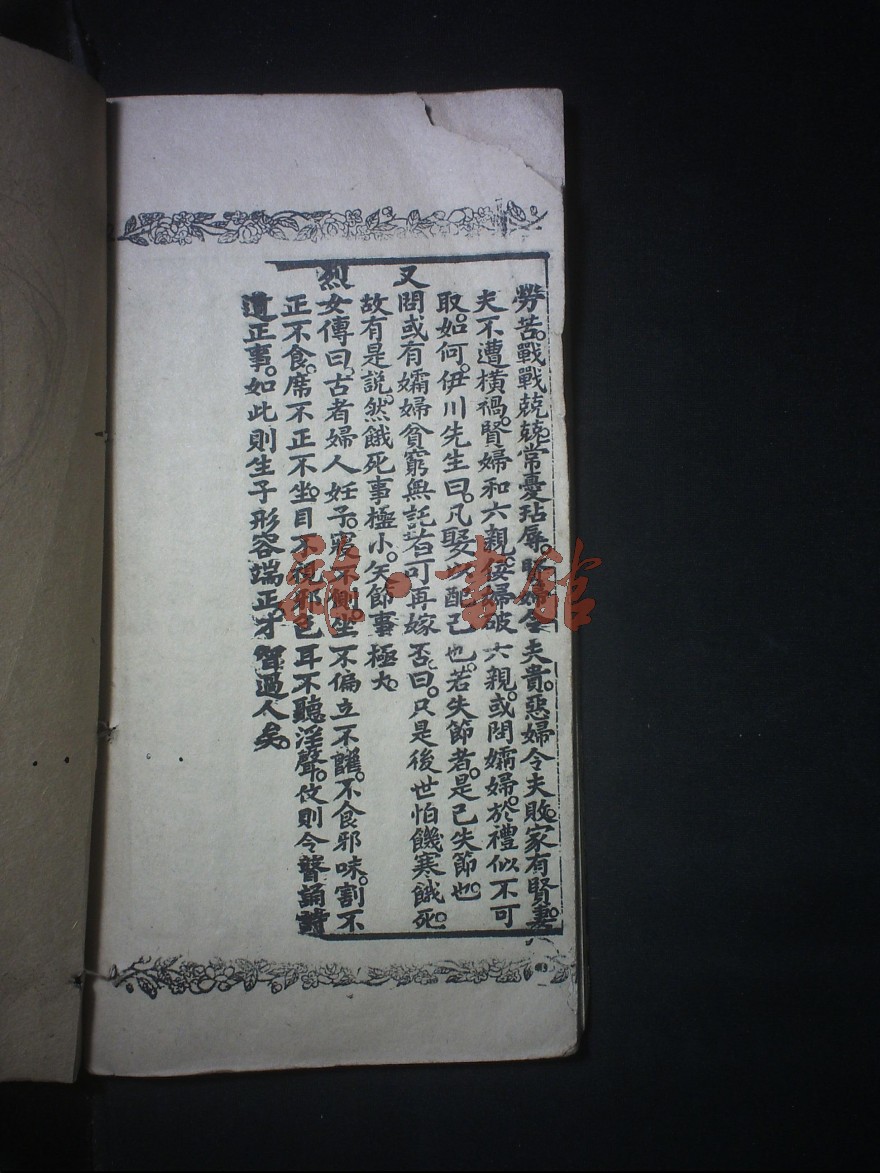 勞苦。戰戰兢兢。常憂玷辱。賢婦令夫貴。惡婦令夫敗。家有賢妻。
夫不遭橫禍。賢婦和六親。佞婦破六親。或問孀婦。於禮似不可
取。如何。伊川先生曰。凡娶以配己也。若失節者。是己失節也。
又問或有孀婦貧窮無託者可再嫁否。曰。只是後世怕饑寒餓死。
故有是説。然餓死事極小。失節事極大。
烈女傳曰。古者婦人妊子。寢不側。坐不偏立不。不食邪味。割不
正不食。席不正不坐。目不視邪色耳不聽淫聲。夜則令瞽誦詩
道正事。如此則生子形容端正。才智過人矣。
雜·書館